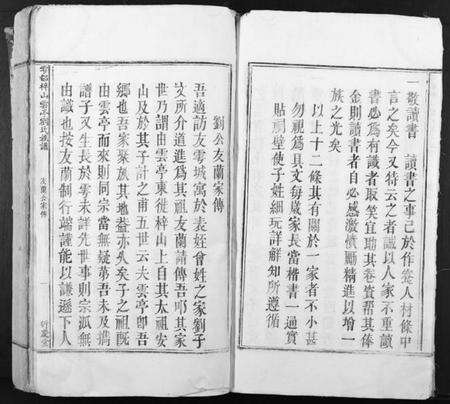 一敬讀書　讀書之事已於作養人材條中
言之矣今又特云之者誠以人家不重讀
書必為有識者取笑宜助其卷資幫其俸
金則讀書者自必感激憤勵精進以增一
族之光矣
以上十二條其有關於一家者不小甚
勿視為具文每歲家長當楷書一過實
貼祠壁使子姓細玩詳解知所遵循
劉公友蘭家傳
吾適訪友雩城寓於表姪曾姓之家劉子
文所介道進為其祖友蘭請傳吾叩其家
世乃謂由雲亭東徙梓山上自其太祖安
山及於其子計之甫五世云夫雲亭即吾
鄉也吾家聚族其地益亦久矣子之祖既
由雲亭而來則同宗當無疑第吾未及搆
譜子又生長於雩未詳先世事則宗派無
由識也按友蘭制行端謹能以謙遜下人
雩都梓山雲亭劉氏族譜
友蘭公家傳